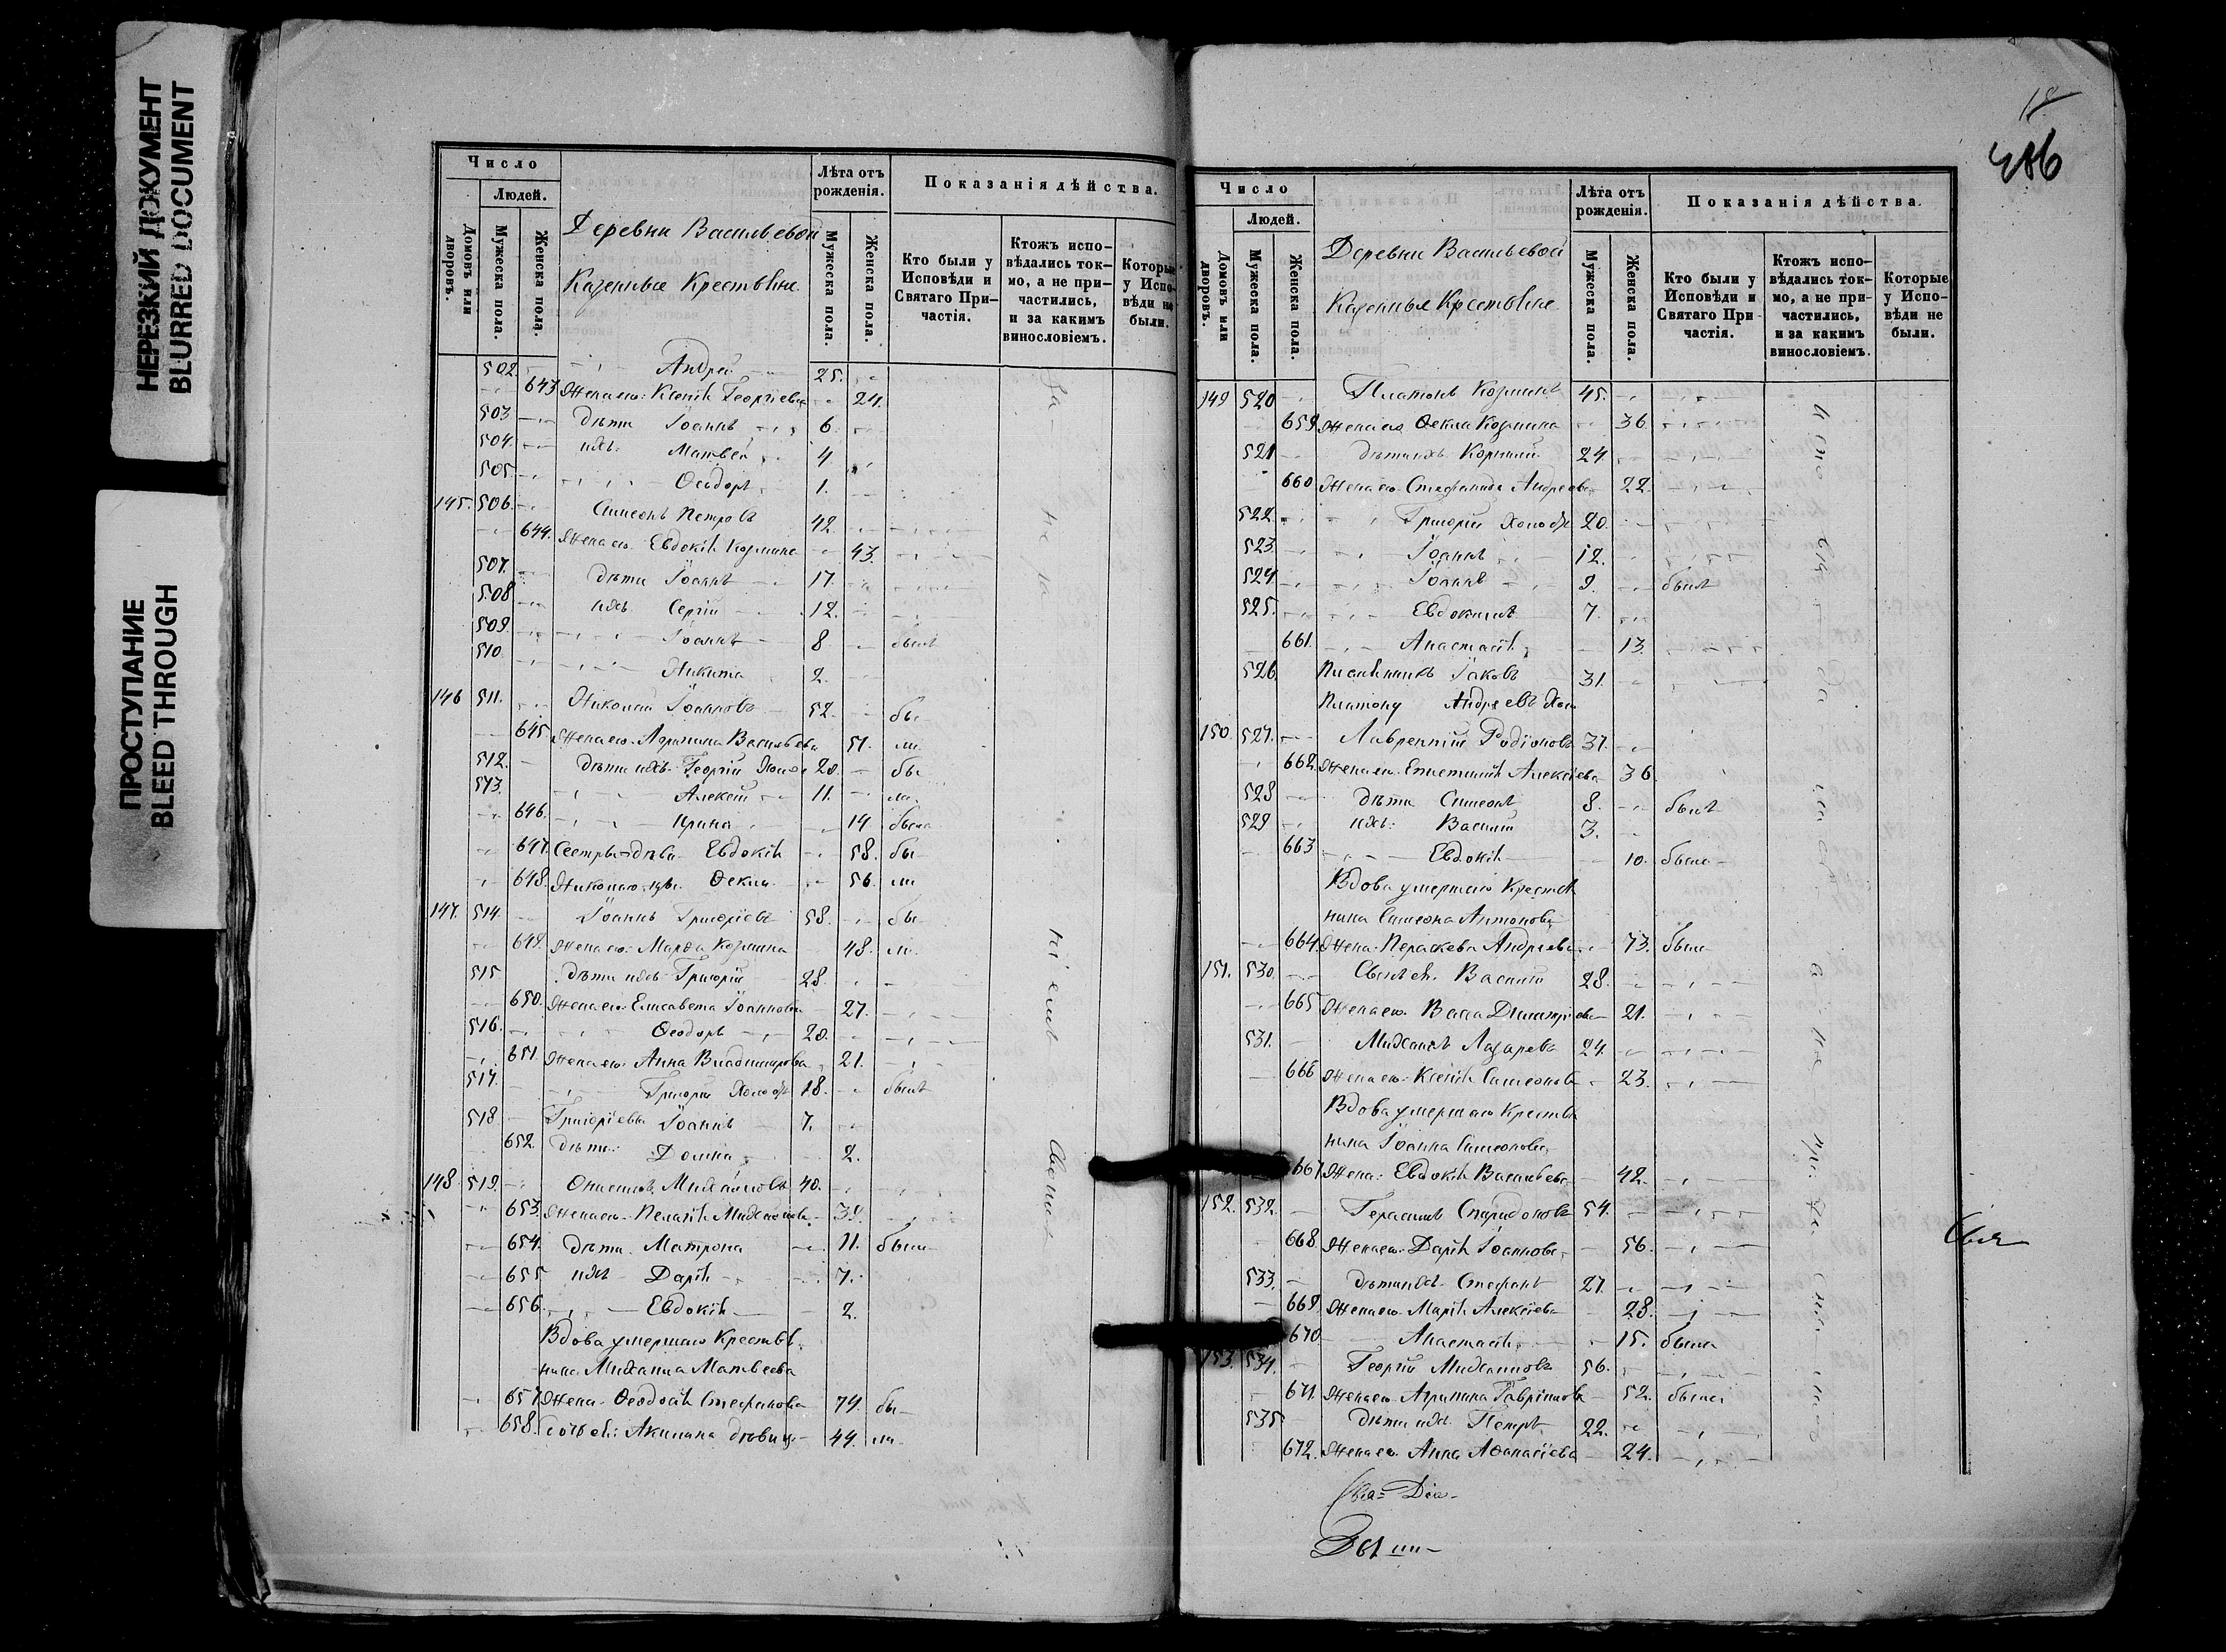 НЕРЕЗКИЙ ДОКУМЕНТ
BLURRED DOCUMENT
ПРОСТУПАНИЕ
BLEED THROUGH
Число
Людей.
Домовъ или дворовъ.
Мужеска пола.
Женска пола.
Деревни Васильевой
Казенные Крестьяне
Лѣта отъ рожденія.
Мужеска пола.
Женска пола.
Показанія дѣйства.
Кто были у Исповѣди и Святаго Причастія.
Ктожъ исповѣдались токмо, а не причастились, и за какимъ винословіемъ.
Которые у Исповѣди не были.
502. Андрей 25.
643 Жена его: Ксенія Георгіева 24.
503 дѣти Іоаннъ 6.
504. ихъ: Матвѣй 4
505. Ѳеодоръ 1.
145. 506. Симеонъ Петровъ 42
644. Жена его Евдокія Козмина 43.
507. дѣти Іоаннъ 17.
508 ихъ Сергій 12.
509. Іоаннъ 8 былъ
510. Никита 2.
146 511. Николай Іоанновъ 52. бы-
645. Жена его Агрипина Васильева 51. ли
512. Дѣти ихъ Георгій Холос 20. бы
513. Алексій 11. ли
646. Ирина 14 была
647. Сестры дѣви Евдокія 58. бы-
648. Ѳекла 56. ли
147. 514. Іоаннъ Григоріевъ 58. бы-
649. Жена его Марѳа Козмина 48. ли.
515 Дѣти ихъ Григорій 28.
650. Жена его Елисавета Іоаннова 27.
516. Ѳеодоръ 20.
651. Жена его Анна Владимирова 21.
517. Григорій Холост 18. былъ
518 Григоріевы Іоаннъ 7.
652. дѣти: Домна 2.
148. 519. Онисимъ Михайловъ 40.
653. Жена его Пелагія 39.
654. Дѣти Матрона 11. была
655 ихъ Дарія 7.
656. Евдокія 2.
Вдова умершаго Крестья
нина Михаила Матвеева
657. Жена Ѳеодосія Стефанова 74. бы-
658. Акилина дѣвица 44. ли
18
486
Число
Людей.
Домовъ или дворовъ.
Мужеска пола.
Женска пола.
Деревни Васильевой
Казенные Крестьяне
Лѣта отъ рожденія.
Мужеска пола.
Женска пола.
Показанія дѣйства.
Кто были у Исповѣди и Святаго Причастія.
Ктожъ исповѣдались токмо, а не причастились, и за какимъ винословіемъ.
Которые у Исповѣди не были.
149 520 Платонъ Козминъ 45.
659. Жена его Ѳекла Козмина 36.
521 Дѣти ихъ Корнилій 24.
660 Жена его Стефанида Андреева 22.
522. Григорій Холост 20.
523. Іоаннъ 12.
524. Іоаннъ 9. былъ
525. Евдокимъ 7.
661. Анастасія 13.
526 Племянникъ Іаковъ 31.
Платону Андреевъ Холо
150. 527. Лаврентій Родіоновъ 37.
662. Жена его Алексіева 36
528 дѣти Симеонъ 8. былъ
529 ихъ: Василій 3.
663 Евдокія 10. была
Вдова умершаго Крестья
нина Симеона Антонова
664. Жена: Параскева Андреева 73. была
151. 530 Сынъ ея Василій 28.
665 Жена его Васса Димитріева 21.
531. Михаилъ Лазаревъ 24.
666 Жена его Ксенія Симеонова 23.
Вдова умершаго Крестья
нина Іоанна Симеонова
667 Жена: Евдокія Васильева 42.
152. 532. Герасимъ Спиридоновъ 54.
668 Жена его Дарія Іоаннова 56.
533. Дѣти ихъ Стефанъ 27.
669. Жена его Марія Алексіева 28.
670. Анастасія 15. была
153 534. Георгій Михайловъ 56.
671. Жена его Агрипина Гавріилова 52. была
535 Дѣти ихъ Петръ 22.
672. Жена его Анна Аѳанасіева 24.